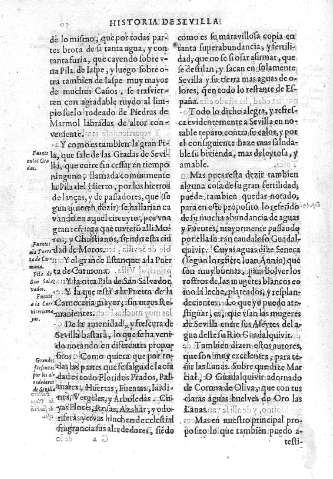 HISTORIA DE SEVILLA
de lo mismo, que por todas par-
tes brota de sí tanta agua, y con
tanta furia, que cayendo sobre v-
na Pila de Iaspe, y luego sobre o-
tra tambien de Iaspe de muy
muchos Caños, se trasvier-
ten con agradable ruydo al lim-
pio suelo rodeado de Piedras de
Marmol labradas de altor con-
veniente.
Y como es tambien la gran Pi-
la, que sale de las Gradas de Sevi-
lla, que corre sin cessar en tiempo
ninguno; llamada comunmente
la Pila del Hierro, por los hierros
de lanças, y de pasadores, que se
en aquel circuyto, por
y Christianos, siendo esta Ciu-
dad de Moros.
Y el grande Estanque a la Puer-
ta de Carmona.
Y la otra Pila de San Salvador,
Y la que está a la Puerta de la
Carne
De la amenidad, y frescura de
Sevilla bastará, lo que se ha ver-
tido tocando en diferentes propo-
sitos. Como quiera que por to-
das las partes que se salga de la ciu-
dad es todo Floridos Prados, Pal-
mares, Huertas, Fuentes, Iardi-
nes, Vergeles, y Arboledas. Cu-
yas Flores, Rosas, Azahar, y odo-
fragrancia sus alrededores, siédo
Fuente
de las Gra-
das.
Fuente
de la Puer-
ta de Car-
mona.
Pila de
San Sal-
vador.
Fuente
Grandes
frescuras
por los al-
rededores
de Sevilla
como es su maravillosa copia en
tanta superabundancia, y fertili-
dad, que no se si osar afirmar, que
se destilan, y sacan en solamente
Sevilla y su tierra mas aguas de o-
lores, que en todo lo restante de Es-
paña.
Todo lo dicho alegra, y refres-
ca evidentemente a Sevilla en no-
table reparo contra los calores, y por
el consiguiente haze mas saluda-
ble su vivienda, mas deleytosa, y
amable.
Mas por esta dezir tambien
alguna cosa de su gran fertilidad,
puede, tambien quedar notado,
para en este proposito, lo referido
de su mucha abundancia de aguas
y Fuentes, mayormente passando
por ella su rio caudaloso Guadal-
quivir. Cuyas aguas dize Seneca
(segun lo refiere Iuan Annio) que
son muy buenas, para bolver los
rostros de las mugeres blancos co-
mo la leche, plateados, y resplan-
decientes. Lo que yo puedo ati-
guar, es; que es usan las mugeres
de Sevilla entre sus Afeytes del a-
gua deste su Rio Guadalquivir.
Tambien dizen estos autores,
que son muy excelentes, para te-
ñir las Lanas. Sobre que dize Mar-
cial. O Guadalquivir adornado
de Corona de Oliva, que con tus
claras aguas buelves de Oro las
Lanas.
Mas en nuestro principal pro-
posito lo que tambien puedo a-
testi-